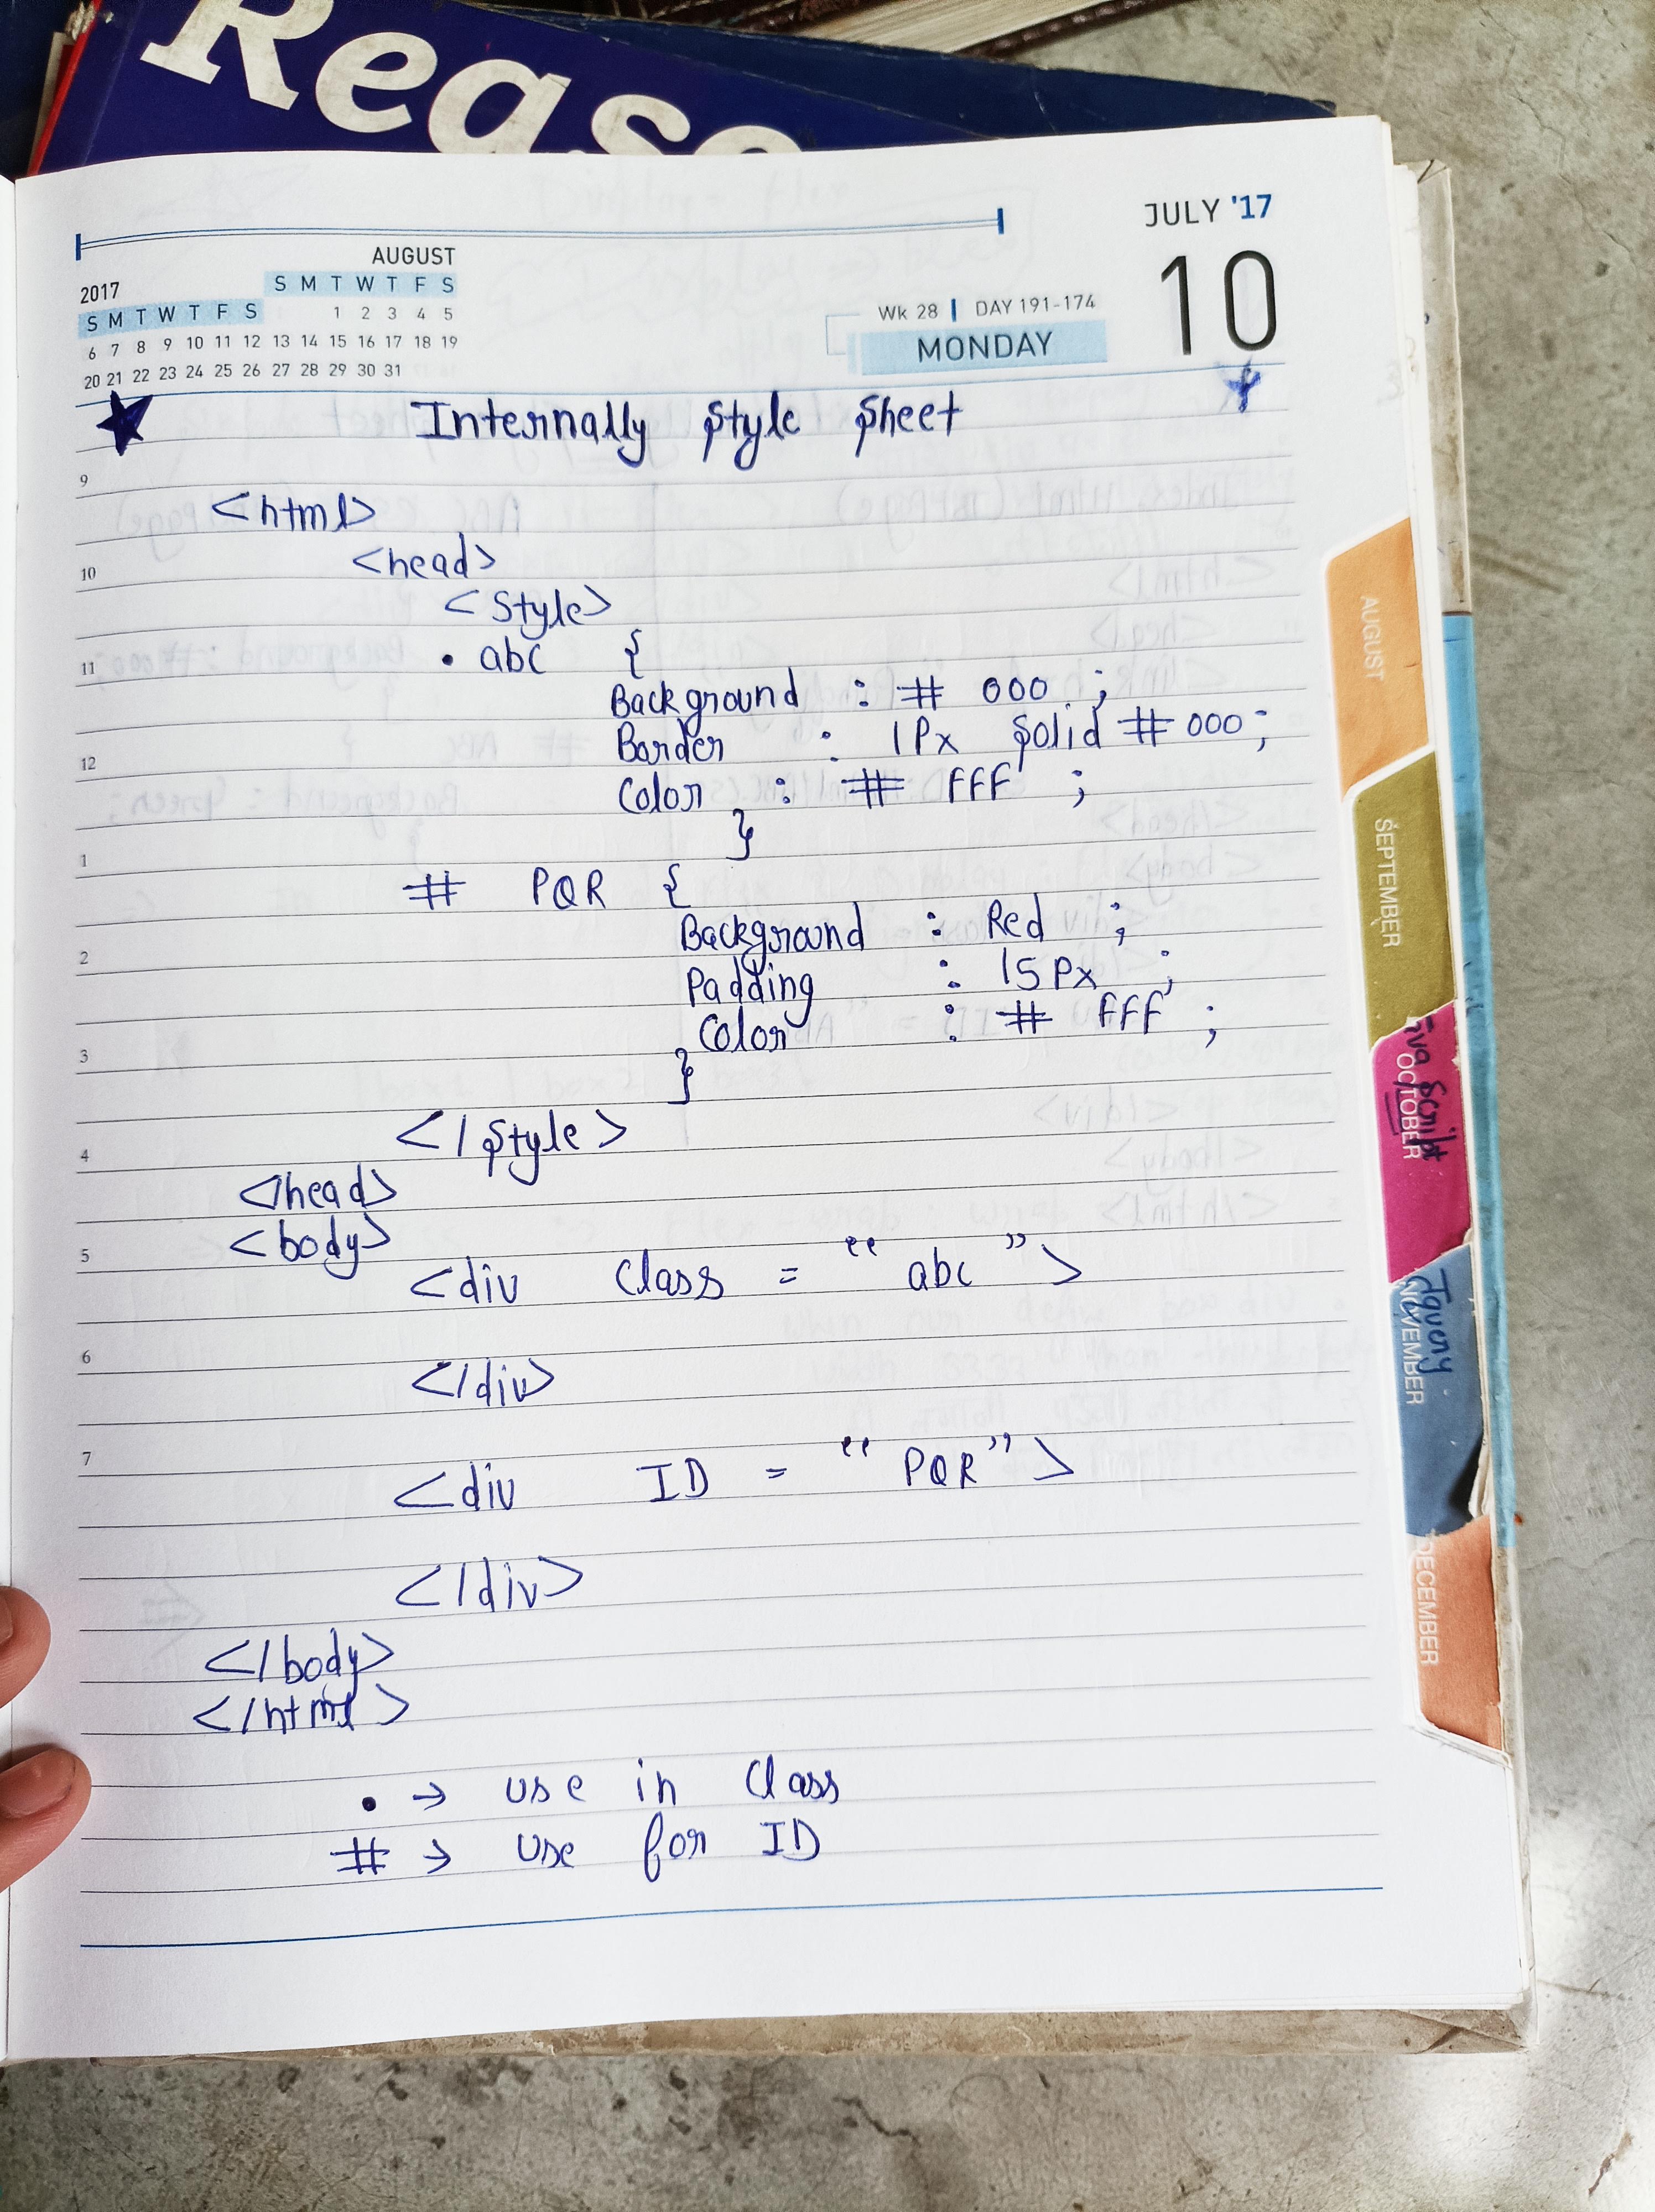 Reaso
JULY '17
10
AUGUST
2017
S M T W T F S
S M T W T F S
1 2 3 4 5
6 7 8 9 10 11 12 13 14 15 16 17 18 19
20 21 22 23 24 25 26 27 28 29 30 31
Wk 28 | DAY 191-174
MONDAY
★ Internally Style Sheet
9
<html>
<head>
10
<Style>
11
. abc {
Background : # 000 ;
Border : 1Px Solid # 000 ;
12
Color : # FFF ;
}
1
# PQR {
Background : Red ;
2
Padding : 15 Px ;
Color : # FFF ;
3
}
</Style>
4
</head>
<body>
5
<div Class = “ abc ”>
6
</div>
7
<div ID = “ PQR ”>
</div>
</body>
</html>
. → use in Class
# → use for ID
AUGUST
SEPTEMBER
OCTOBER
Script
NOVEMBER
Jquery
DECEMBER